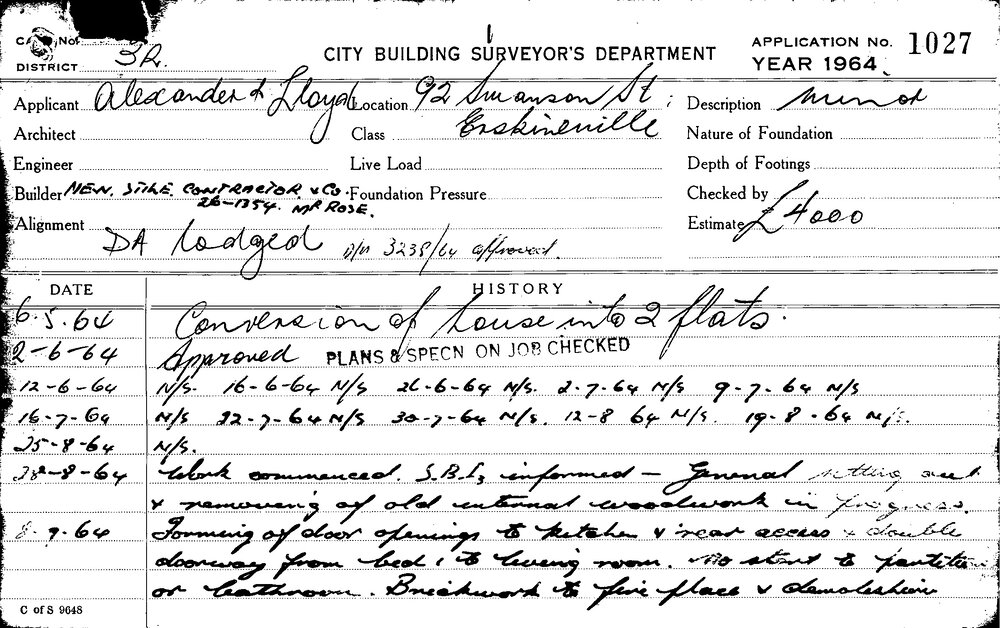 CITY BUILDING SURVEYOR'S DEPARTMENT
APPLICATION No. 1027
YEAR 1964
No.
DISTRICT 3R.
Applicant Alexander & Lloyd Location 92 Swanson St; Description minor
Architect Class Erskineville Nature of Foundation
Engineer Live Load Depth of Footings
Builder NEW. STILE. CONTRACTOR & Co. Foundation Pressure Checked by
26-1354. MR ROSE.
Alignment Estimate £4000
DA lodged D/A 3238/64 approved.
DATE HISTORY
6.5.64 Conversion of house into 2 flats.
2-6-64 Approved PLANS & SPECN ON JOB CHECKED
12-6-64 N/S. 16-6-64 N/S 26-6-64 N/S. 2-7-64 N/S 9-7-64 N/S
16-7-64 N/S 22-7-64 N/S 30-7-64 N/S. 12-8 64 N/S. 19-8-64 N/S.
25-8-64 N/S.
28-8-64 Work commenced. S.B.I, informed - General setting out
& removing of old internal woodwork in progress.
8-9-64 Forming of door openings to kitchen & rear access & double
doorway from bed 1 to living room. No start to partition
or bathroom. Brickwork to fire place & demolishion
C of S 9648